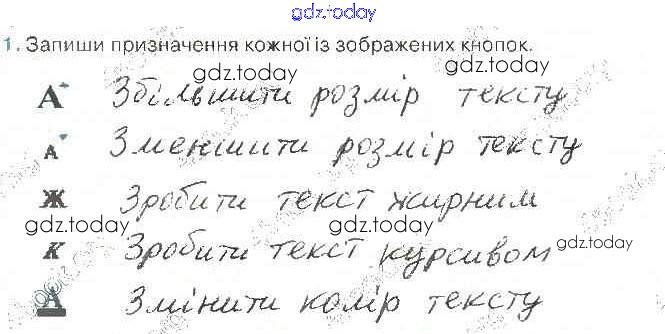 gdz.today
1. Запиши призначення кожної із зображених кнопок.
gdz.today gdz.today
А Збільшити розмір тексту
А Зменшити розмір тексту
Ж Зробити текст жирним
gdz.today gdz.today gdz.today
К Зробити текст курсивом
А Змінити колір тексту